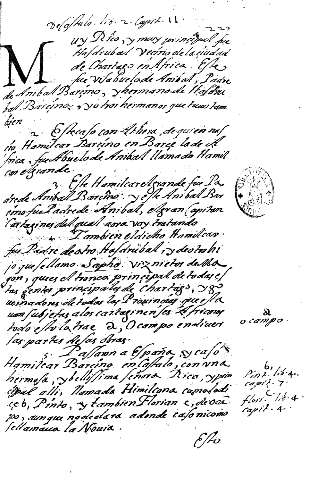 De Castulo. lib. 2. Capit. 11.
Muy Rico, y muy principal fue
Hasdrubal Vecino de la ciudad
de Chartago en Africa. Este
fue visabuelo de Anibal, Padre
de Anibal Barcino, y hermano de Hasdru
bal Barcino, y otros hermanos que tuvo tam
bien
2. Este caso con de quien nas
cio Hamilcar Barcino en Barce lo de A
frica, fue Abuelo de Anibal llamado Hamil
car el grande.
Este Hamilcar el grande fue Pa
dre de Anibal Barcino: y este Anibal Bar
cino fue Padre de Anibal, el gran Capitan
Cartagines del qual ara voy tratando
Tambien el dicho Hamilcar
fue Padre de otro Hasdrubal, y de otro hi
jo que se llamo Sapho, viznietos de Ma
gon, que es el tronco principal de todas es
tas gentes principales de chartago, y go
vernadores de todas las Provincias que esta
van subjetas a los cartaginenses Africanos
todo esto lo trae a, Ocampo en diver
sas partes de sus obras.
3. Passaron a España, y caso
Hamilcar Barcino en Castulo, con una
hermosa, y bellissima señora Rica, y prin
cipal alli, llamada Himilcona
Pinto, y tambien Florian c, de oca
po, aunque no declara a donde caso ni como
se llamava la Novia.
Esto
a
ocampo
b,
Pint. lib. 4.
capit. 7.
flori. lib. 4.
capit. 4.